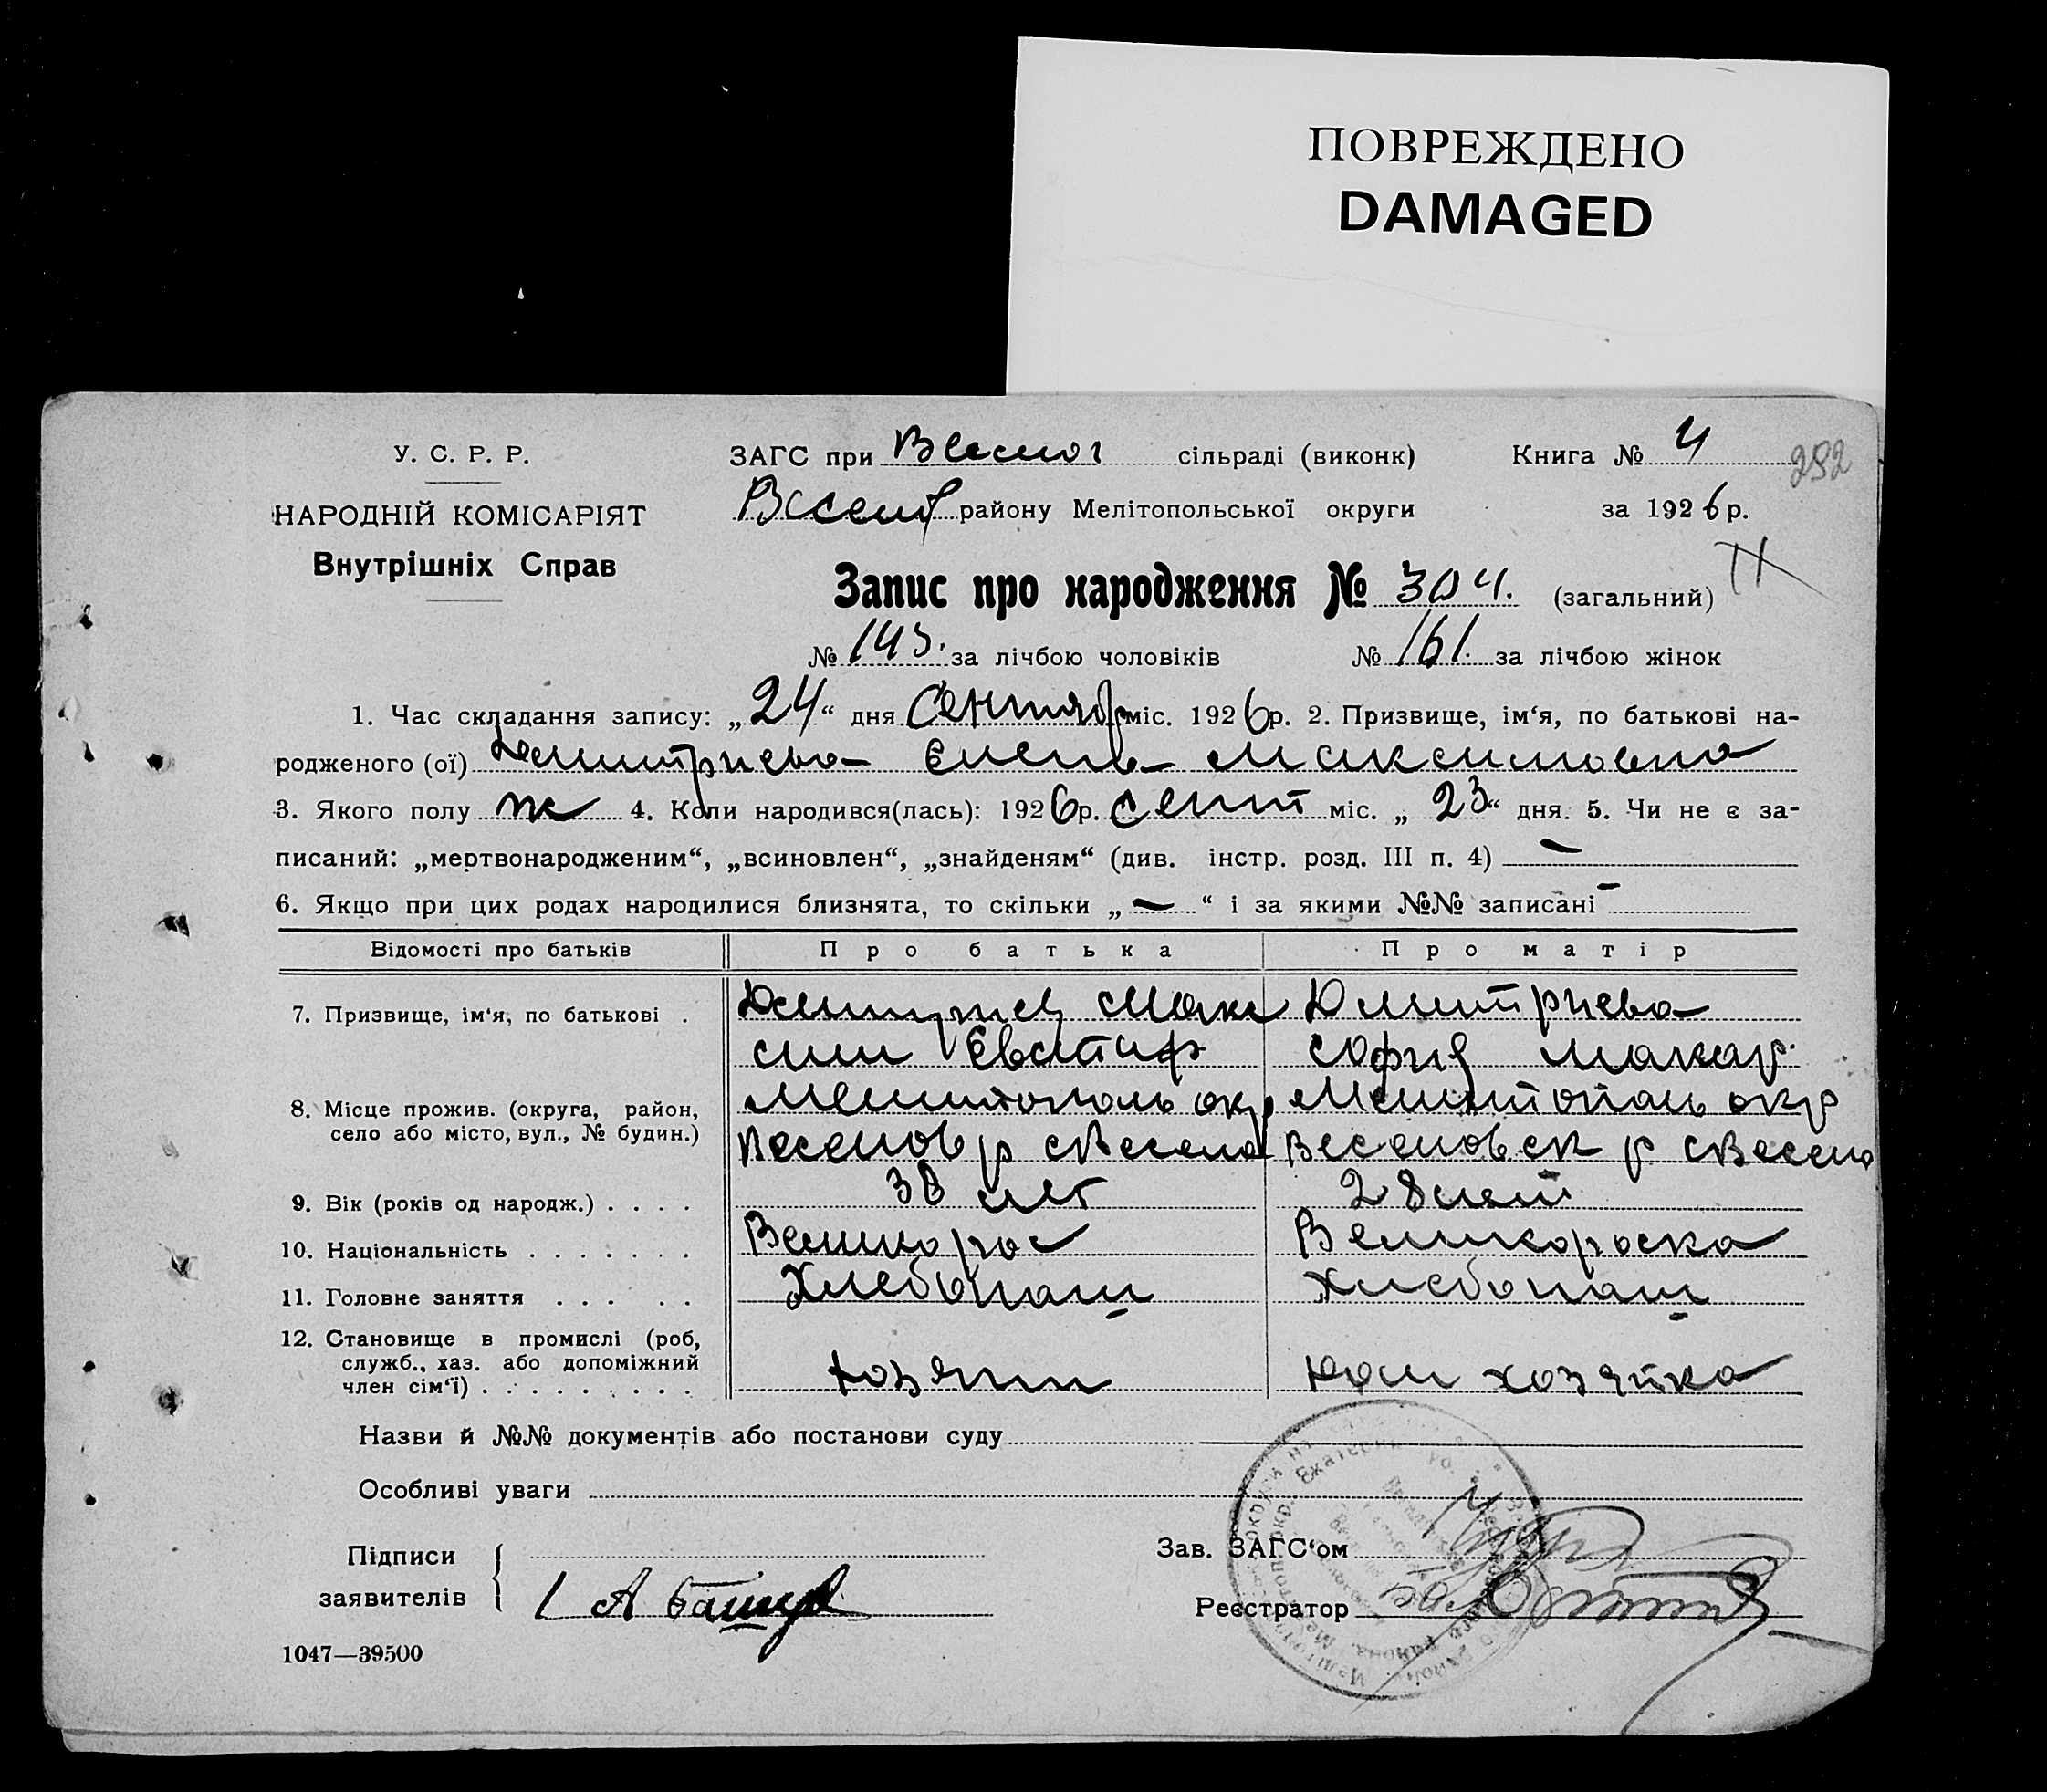 ПОВРЕЖДЕНО
DAMAGED
У. С. Р. Р.
НАРОДНІЙ КОМІСАРІЯТ
Внутрішніх Справ
ЗАГС при сільраді (виконк) Книга № 4
282
району Мелітопольської округи за 1926 р.
Запис про народження № 304. (загальний)
№ 143. за лічбою чоловіків № 161. за лічбою жінок
1. Час складання запису: „24“ дня Сентяб міс. 1926 р. 2. Призвище, ім‘я, по батькові на-
родженого (ої) Дмитриева Елена Максимовна
3. Якого полу ж 4. Коли народився(лась): 1926 р. Сент міс. „23“ дня. 5. Чи не є за-
писаний: „мертвонародженим“, „всиновлен“, „знайденям“ (див. інстр. розд. III п. 4) —
6. Якщо при цих родах народилися близнята, то скільки „—“ і за якими №№ записані —
Відомості про батьків Про батька Про матір
7. Призвище, ім‘я, по батькові . Дмитриев Мак Дмитриева
сим София Макар.
8. Місце прожив. (округа, район, Мелитополь окр Мелитополь окр
село або місто, вул., № будин.) Веселов р с Весело Веселовск р с Весело
9. Вік (років од народж.) . . . . 38 лет 28 лет
10. Національність . . . . . . . Великорос Великороска
11. Головне заняття . . . . . Хлебопаш Хлебопаш
12. Становище в промислі (роб,
служб., хаз. або допоміжний
член сім‘ї) . . . . . . . . . хозяин дом хозяйка
Назви й №№ документів або постанови суду
Особливі уваги
Підписи
заявителів
Зав. ЗАГС‘ом
Реєстратор
1047—39500